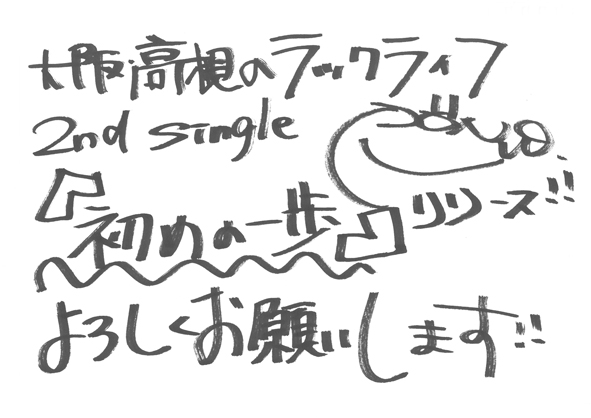 大阪高槻のラックライフ
2nd single
『初めの一歩』リリース!!
よろしくお願いします!!